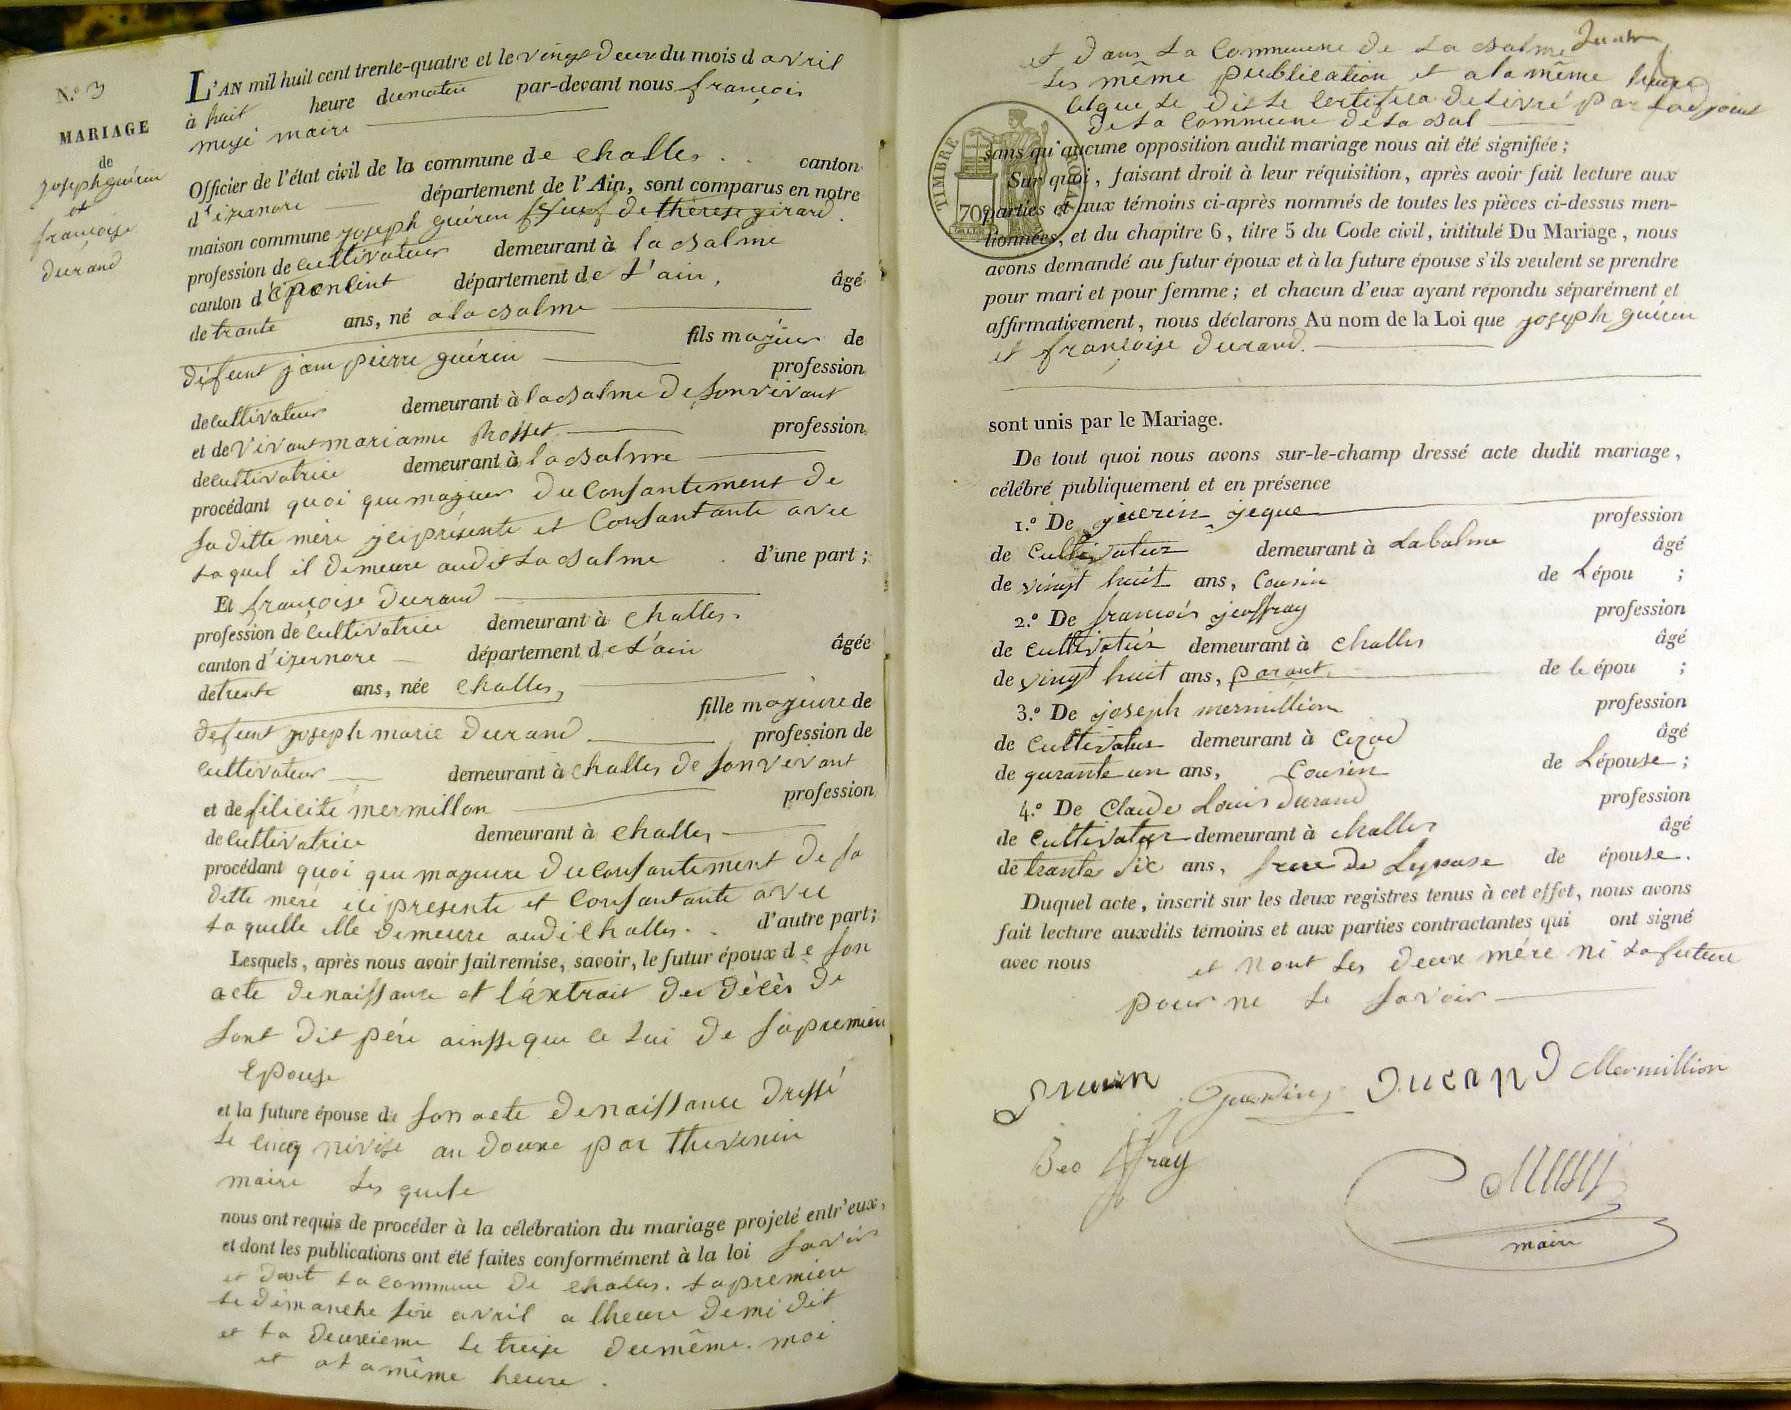 N.º 3
MARIAGE
de
joseph guérin
et
françoise
durand
L'AN mil huit cent trente-quatre et le vingt deux du mois d avril
à huit heure du matin par-devant nous françois
maire
Officier de l'état civil de la commune de challes canton
d'izernore département de l'Ain, sont comparus en notre
maison commune joseph guérin veuf de thérèse girard.
profession de cultivateur demeurant à la Balme
canton d' département de L'ain, âgé
de trante ans, né a la Balme
fils majeur de
défunt jean pierre guérin profession
de cultivateur demeurant à la Balme de son vivant
et de vivant marianne profession
de cultivatrice demeurant à la Balme
procédant quoi que majeur du consantement de
sa ditte mère ici présente et consantante avec
la quel il demeure audit La Balme d'une part ;
Et françoise durand
profession de cultivatrice demeurant à challes.
canton d'izernore département de L'ain âgée
de trente ans, née challes,
fille majeure de
défunt joseph marie durand profession de
cultivateur demeurant à challes de son vivant
et de félicité mermillon profession
de cultivatrice demeurant à challes
procédant quoi que majeure du consantement de sa
ditte mère ici présente et consantante avec
la quelle elle demeure audi challes. d'autre part ;
Lesquels, après nous avoir fait remise, savoir, le futur époux de son
acte de naissance et l'extrait du décès de
sont dit père ainsse que ce lui de sa premier
Epouse
et la future épouse de son acte de naissance dressé
le cinq nivose an douze par thevenin
maire les quele
nous ont requis de procéder à la célébration du mariage projeté entr'eux,
et dont les publications ont été faites conformément à la loi savoir
et dant la commune de challes. la premiere
le dimanche sixe avril a lheure de mi dit
et la deuxieme le treize du même moi
et a la même heure.
et dans la commune de la Balme
les même publication et a la même heure
delivré par Ladjoint
de la commune de la Bal
TIMBRE ROYAL
70
sans qu'aucune opposition audit mariage nous ait été signifiée ;
Sur quoi, faisant droit à leur réquisition, après avoir fait lecture aux
parties et aux témoins ci-après nommés de toutes les pièces ci-dessus men-
tionnées, et du chapitre 6, titre 5 du Code civil, intitulé Du Mariage, nous
avons demandé au futur époux et à la future épouse s'ils veulent se prendre
pour mari et pour femme ; et chacun d'eux ayant répondu séparément et
affirmativement, nous déclarons Au nom de la Loi que joseph guérin
et françoise durand.
sont unis par le Mariage.
De tout quoi nous avons sur-le-champ dressé acte dudit mariage,
célébré publiquement et en présence
1.º De guerin jeque profession
de cultivateur demeurant à Labalme âgé
de vingt huit ans, cousin de Lépou ;
2.º De francois jeoffray profession
de cultivateur demeurant à challes âgé
de vingt huit ans, parant de le épou ;
3.º De joseph mermillion profession
de cultivateur demeurant à Cizod âgé
de qurante un ans, cousin de Lépouse ;
4.º De Claude Louis durand profession
de cultivateur demeurant à challes âgé
de trante sic ans, frere de Lepouse de épouse.
Duquel acte, inscrit sur les deux registres tenus à cet effet, nous avons
fait lecture auxdits témoins et aux parties contractantes qui ont signé
avec nous et nont les deux mére ni la future
pour ne le savoir
Durand Mermillion
Beo ffray
maire